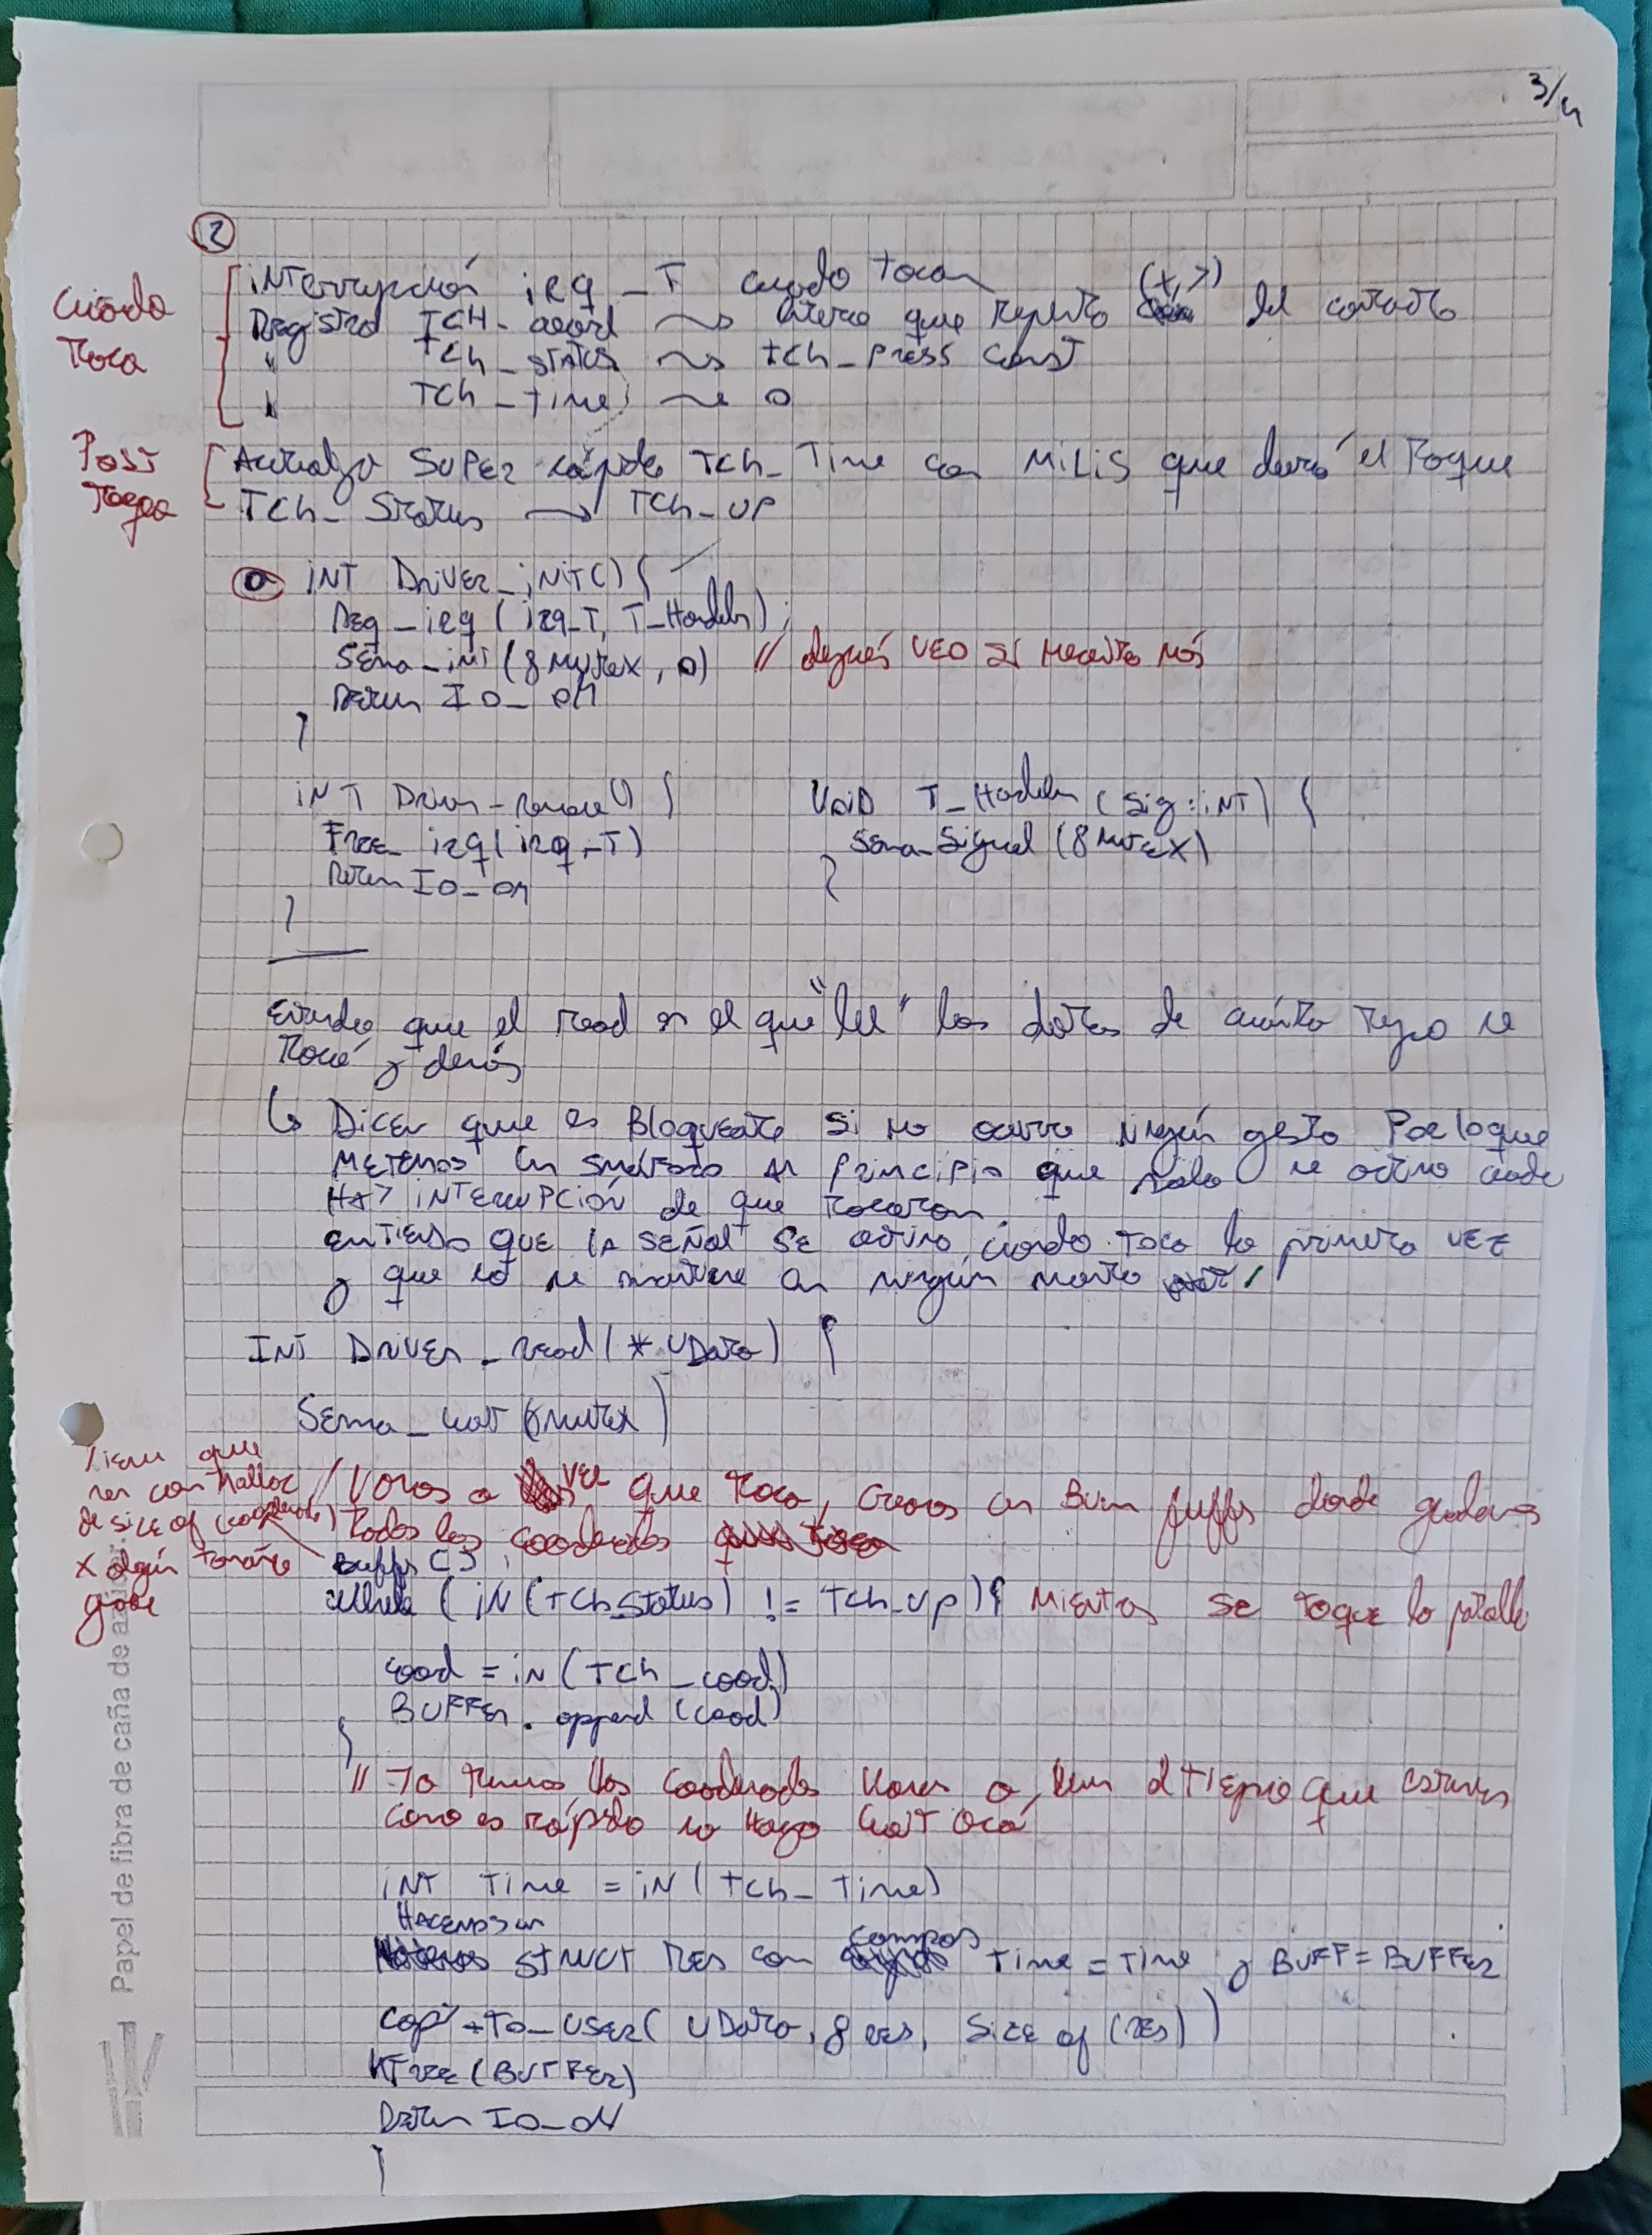 3/4
②
Cuándo
Toca
INTerrupción irq_T cuando tocan
Registro TCH_coord ~> entero que representa (x,y) del contacto
" TCh_status ~> TCh_press const
" TCh_time ~> 0
Post
Toque
Actualizo SUPER rápido TCh_Time con MiLiS que duró el Toque
TCh_Status → TCh_UP
ⓐ INT Driver_iNiT() {
Req_irq (irq_T, T_Handler);
Sema_iniT (&MUTEX, 0) // después VEO si necesito más
Return IO_OK
}
iNT Driver_remove() {
Free_irq(irq_T)
Return IO_OK
}
VoiD T_Handler (Sig: iNT) {
Sema_Signal (&MUTEX)
}
Entiendo que el read es el que "lee" los datos de cuánto tiempo se
tocó y demás
↳ Dicen que es Bloqueante si no ocurre ningún gesto Por lo que
METEMOS un semáforo Al principio que solo se activa cuando
HAY iNTERRUPCIÓN de que tocaron.
ENTIENDO QUE LA SEÑAL SE activa cuando toca la primera VEZ
y que no se mantiene en ningún momento
INT Driver_read(*UData) {
Sema_wait (&mutex)
Tiene que
ser con malloc
de size of (coordenada)
x algún tamaño
grande
// Vamos a VER que toca, creamos un Buen buffer donde guardamos
todas las coordenadas
Buffer [];
While (iN(TCh_Status) != TCh_Up){ MiENtras SE toque la pantalla
coord = iN (TCh_coord)
BUFFER.append (coord)
}
// Ya tenemos las coordenadas vamos a leer el tiempo que estuvo
como es rápido no Hago wait acá
iNT Time = iN (TCh_Time)
HACEMOS un
STRUCT RES con campos Time = Time y BUFF = BUFFER
Copy_To_USER( UData, &res, Size of (RES))
KFREE (BUFFER)
Return IO_OK
}
Papel de fibra de caña de azúcar.